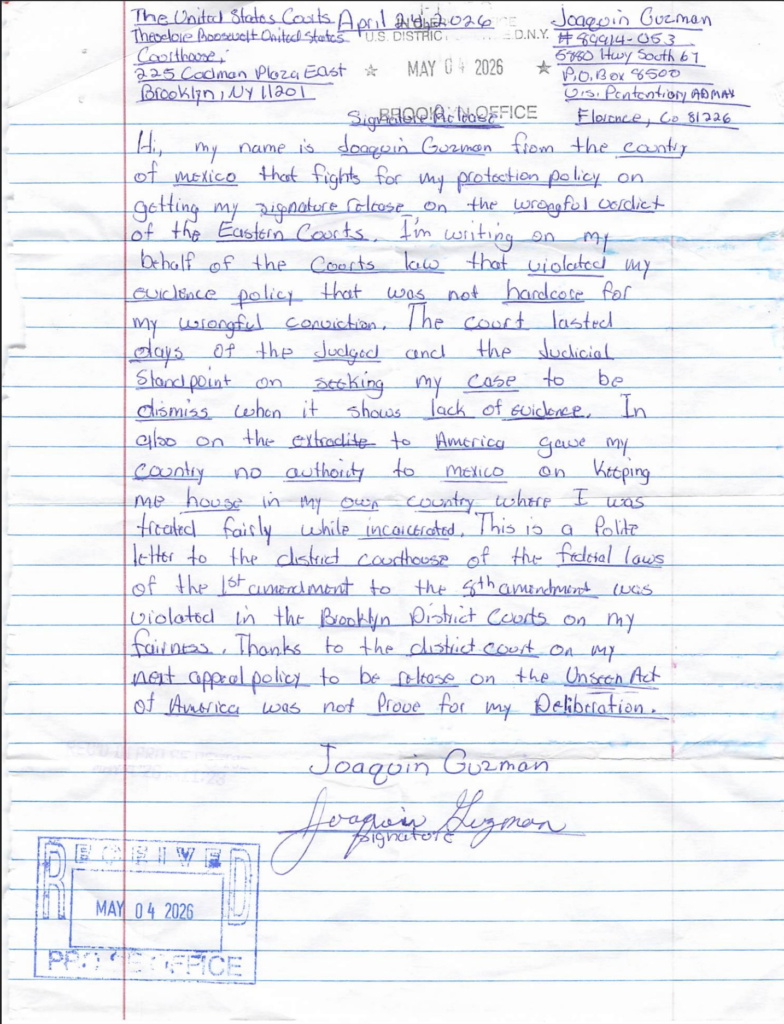 The United States Courts April 2026
Theodore Roosevelt United States
Courthouse,
225 Cadman Plaza East
Brooklyn, NY 11201
U.S. DISTRIC D.N.Y.
★ MAY 04 2026 ★
BROOKLYN OFFICE
Joaquin Guzman
# 89914-053
5880 Hwy South 67
P.O. Box 8500
U.S. Pententiary ADMAX
Florence, Co 81226
Signature Release
Hi, my name is Joaquin Guzman from the country
of mexico that fights for my protection policy on
getting my signature release on the wrongful verdict
of the Eastern Courts. I'm writing on my
behalf of the Courts law that violated my
evidence policy that was not hardcore for
my wrongful conviction. The court lasted
days of the Judged and the Judicial
Standpoint on seeking my case to be
dismiss when it shows lack of evidence. In
also on the extradite to America gave my
Country no authority to mexico on Keeping
me house in my own country where I was
treated fairly while incarcerated. This is a Polite
letter to the district courthouse of the federal laws
of the 1st amendment to the 8th amendment was
violated in the Brooklyn District Courts on my
fairness. Thanks to the district court on my
next appeal policy to be release on the Unseen Act
of America was not Prove for my Deliberation.
Joaquin Guzman
Joaquin Guzman
Signature
RECEIVED
MAY 04 2026
PRO SE OFFICE